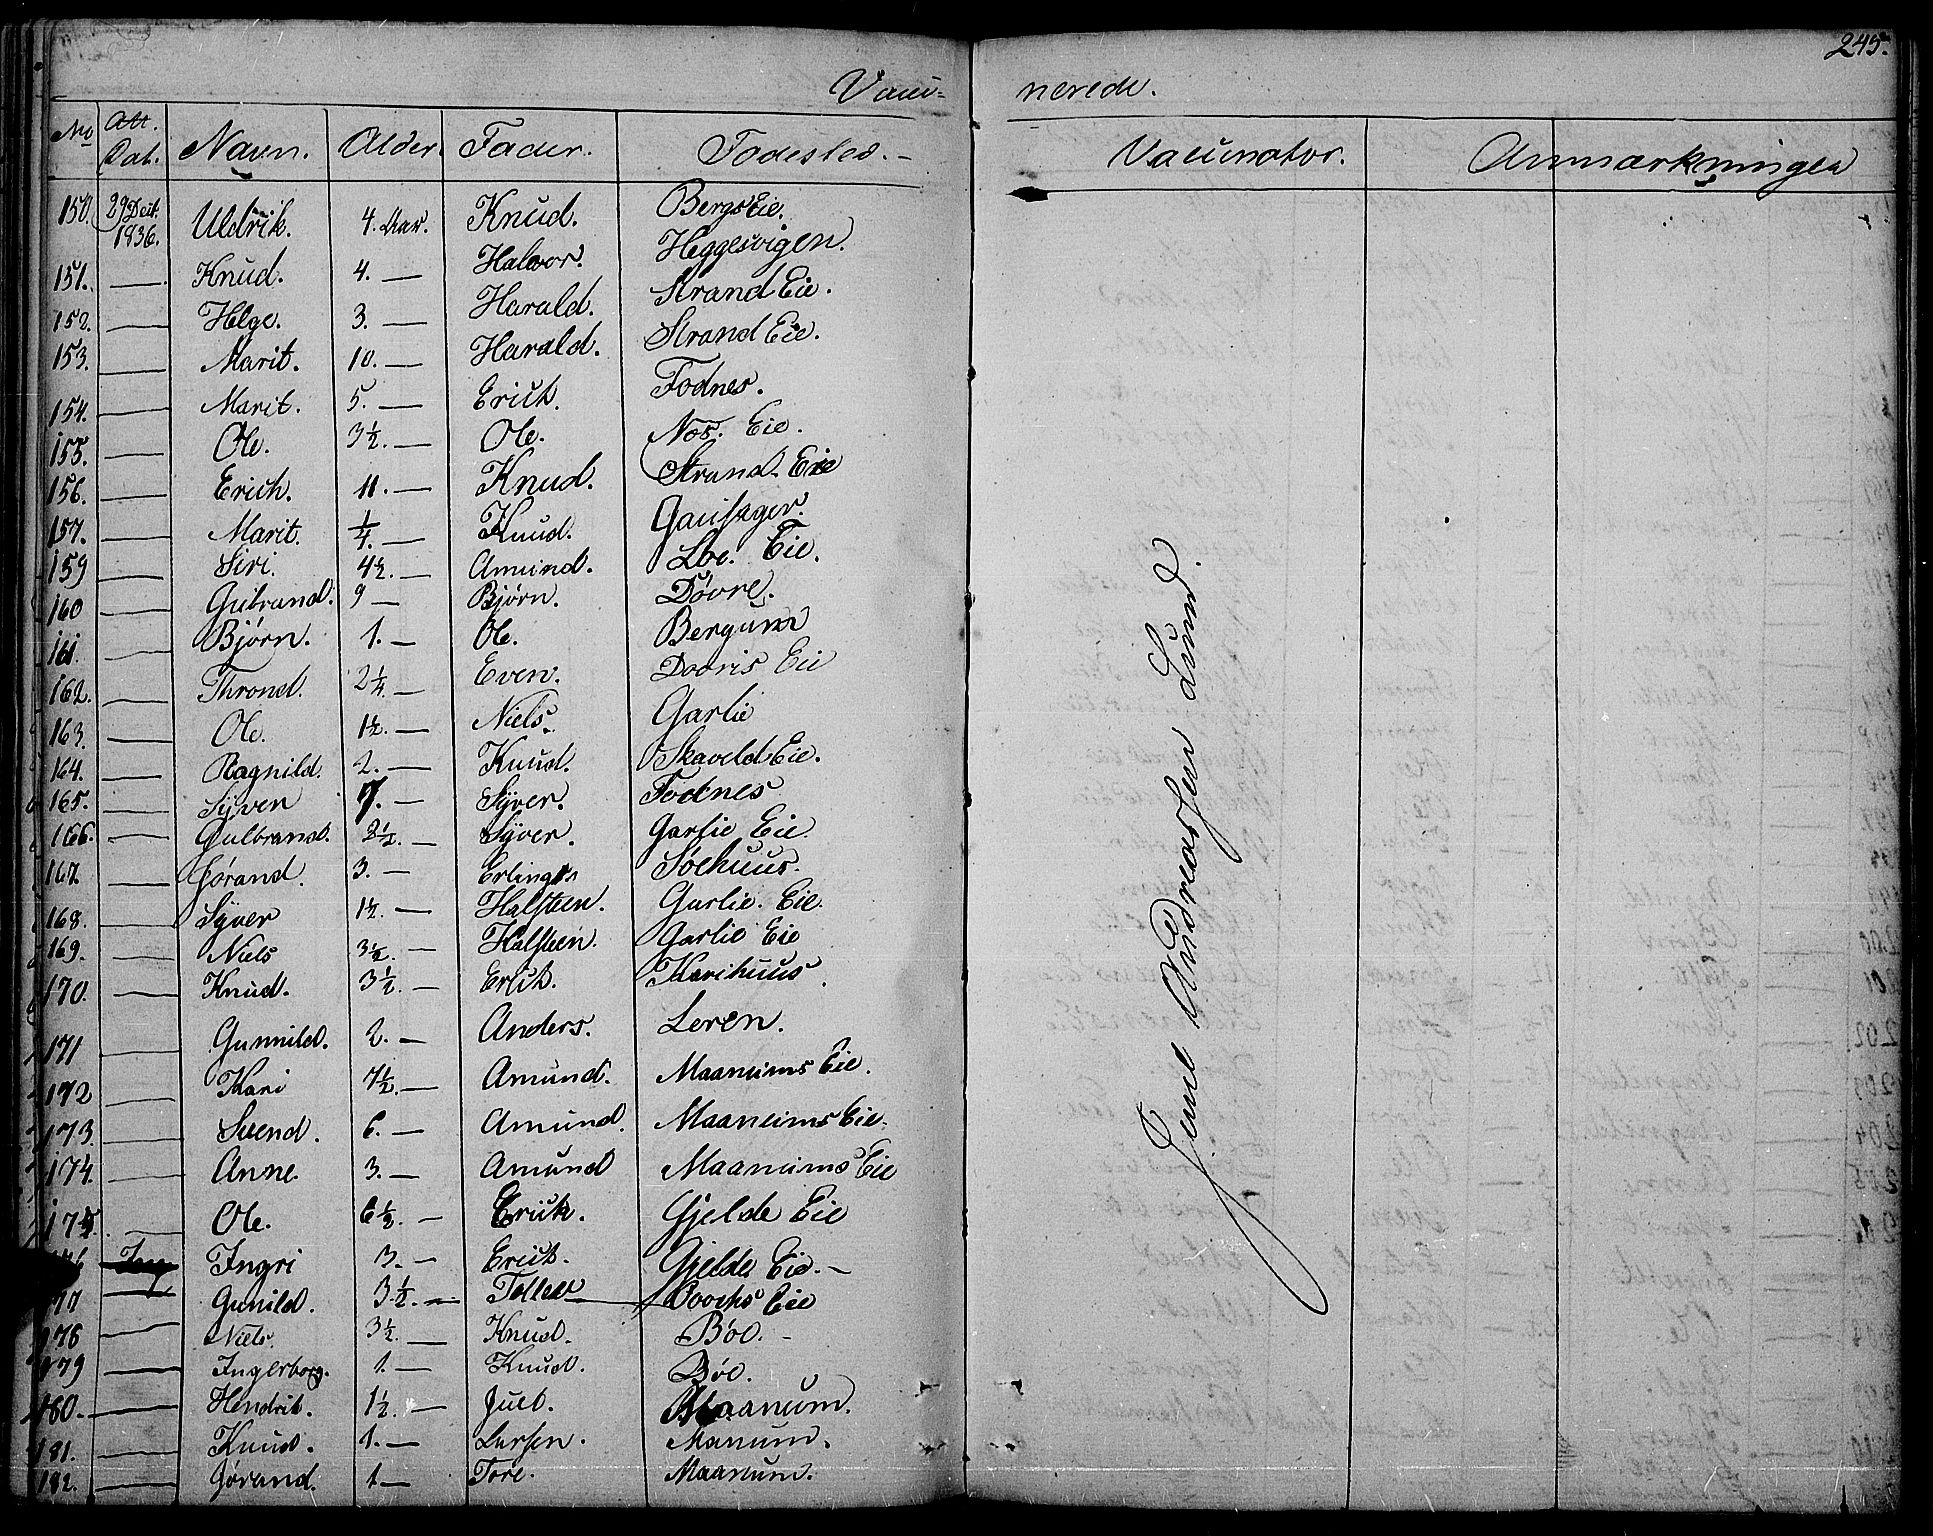 245.
Vacci= nerede.
No Att. Dat. Navn. Alder. Fader. Fødested. - Vaccinator. Anmærkninger
150. 29 Dect. 1836. Uldrik. 4. Aar. Knud. Bergs Eie.
151. — Knud. 4. — Halvor. Heggesvigen.
152. — Helge. 3. — Harald. Strand Eie.
153. — Marit. 10. — Harald. Strand Eie.
154. — Marit. 5. — Erick. Fodnes.
155. — Ole. 3½. — Ole. Næs. Eie.
156. — Erich. 11. — Knud. Strand. Eie
157. — Marit. ¼. — Knud.
159 — Siri. 4½. — Amund. Loe. Eie.
160 — Gulbrand. 9 — Bjørn. Døvre.
161. — Bjørn. 1. — Ole. Bergum
162. — Thrond. 2¼. — Even. Eie
163. — Ole. 1½. — Niels. Garlie
164. — Ragnild. 2. — Knud. Skaveld Eie.
165. — Syven 7. — Syver. Fodnes
166. — Gulbrand. 2½. — Syver. Garlie Eie
167. — Jørand. 3. — Erling Søehuus.
168. — Syver 1½. — Halsteen. Garlie. Eie.
169. — Niels 3½. — Halsteen. Garlie Eie
170. — Knud. 3½. — Erick. Karihuus.
171 — Gunnild. 2. — Anders. Leren.
172 — Kari 7½. — Amund. Maanums Eie.
173. — Svend. 6. — Amund. Maanums Eie.
174. — Anne. 3. — Amund Maanums Eie
175. — Ole. 6½. — Erick. Gjelde Eie
176 Ing Ingri 3. — Erick. Gjelde Eie. —
177 — Gunild. 3½. — Tollev Eie
178 — Niels. 3½. — Knud. Bøe. -
179 — Ingerborg. 1. — Knud. Bøe.
180. — Hendrik. 1½. — Maanum.
181. — Knud. 1. — Larsen. Manum.
182. — Jørand. 1 — Tore. Maanum.
Jens Andreassen Lund.